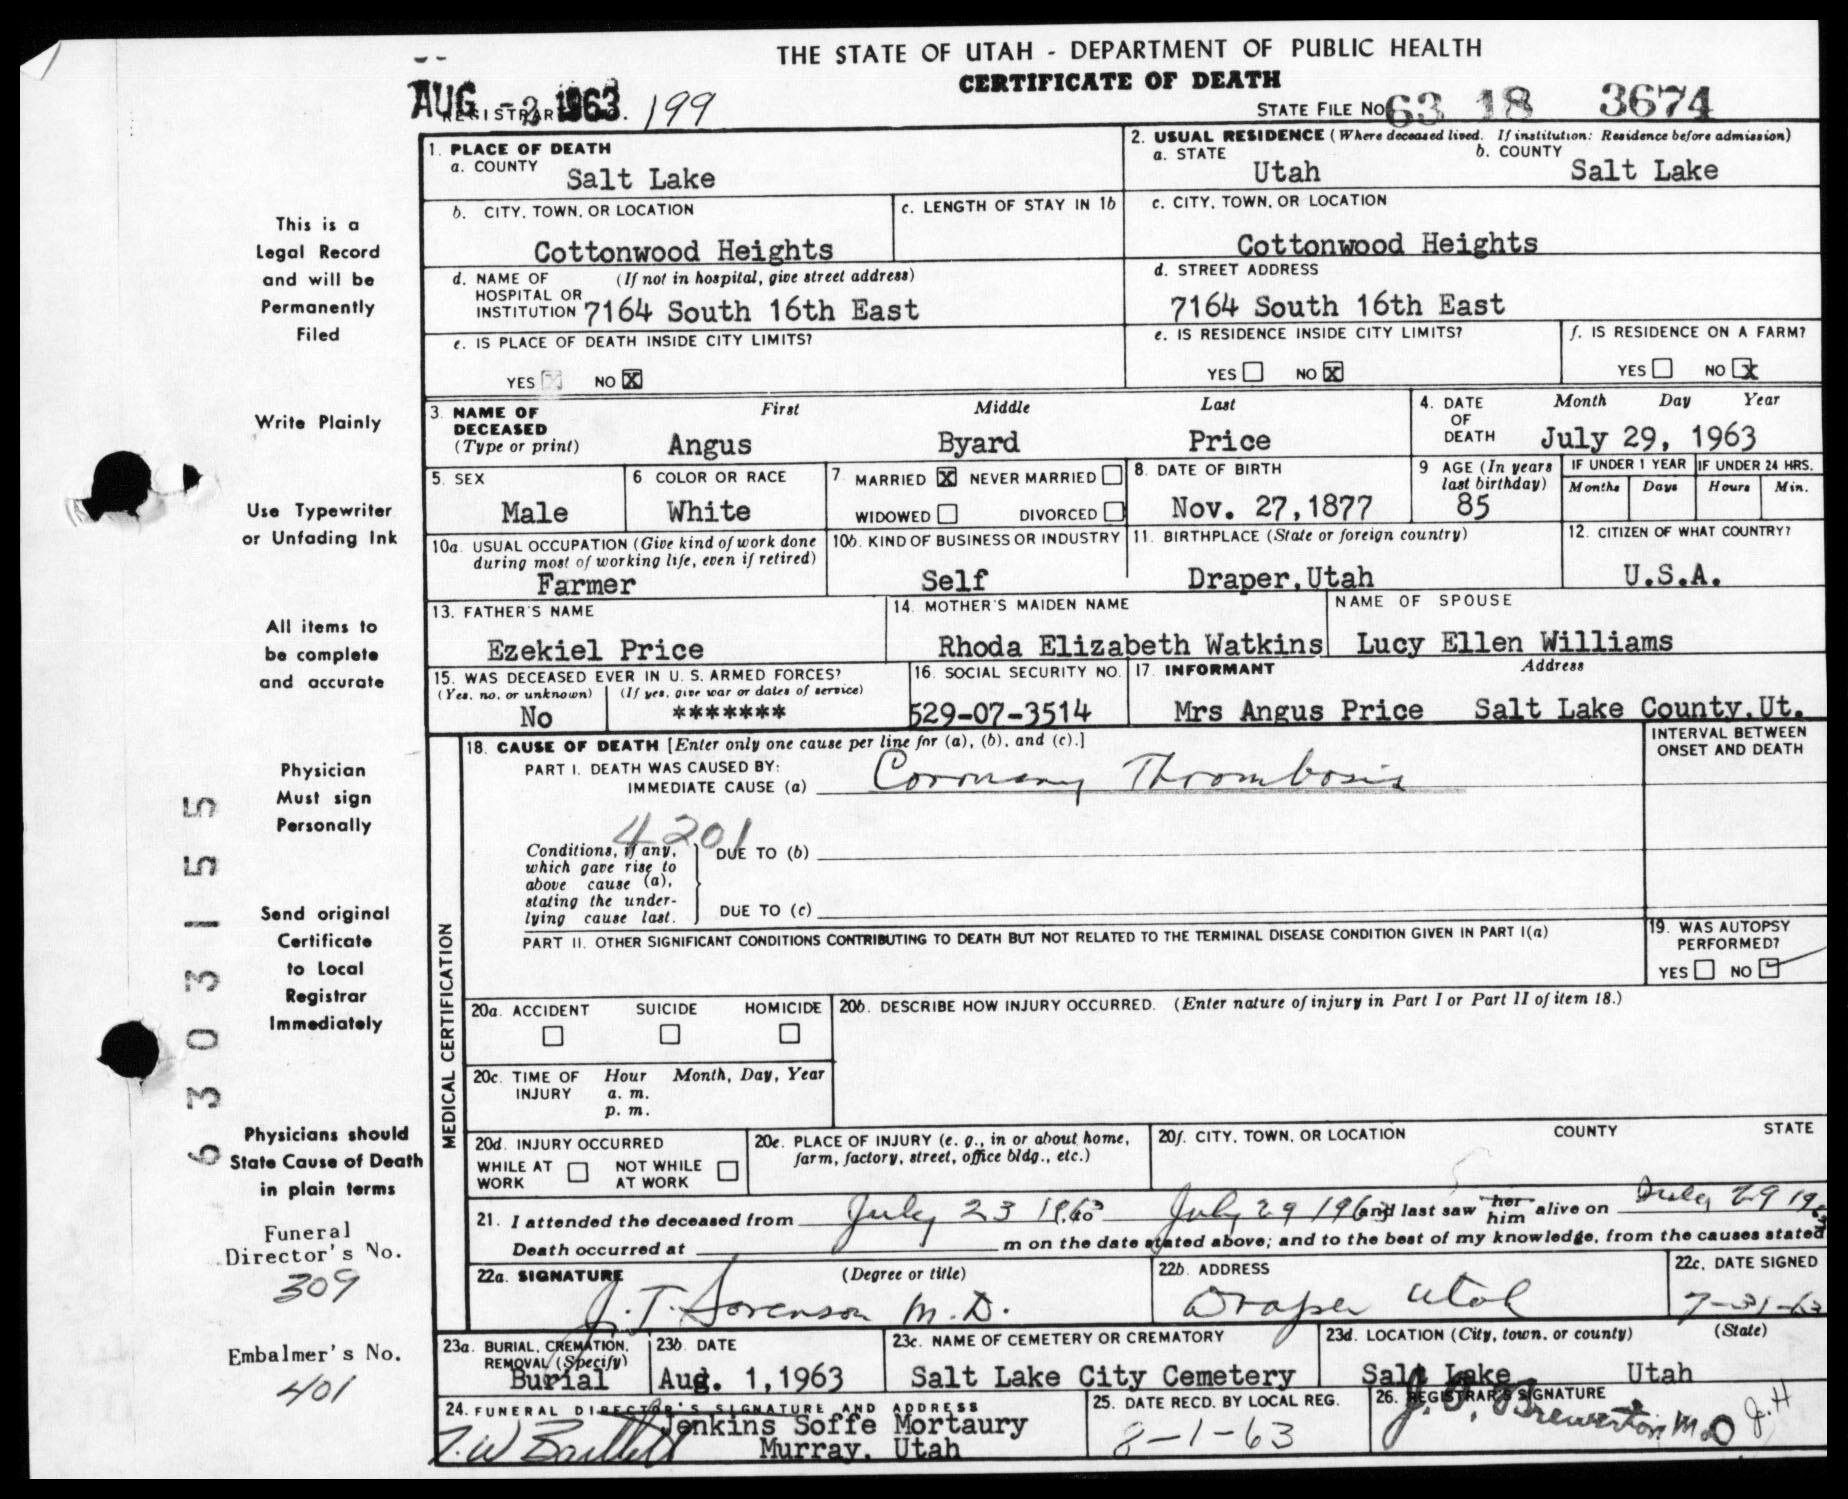 THE STATE OF UTAH - DEPARTMENT OF PUBLIC HEALTH
CERTIFICATE OF DEATH
AUG -2 1963
REGISTRAR 199
STATE FILE NO 63 18 3674
1. PLACE OF DEATH
a. COUNTY Salt Lake
2. USUAL RESIDENCE (Where deceased lived. If institution: Residence before admission)
a. STATE Utah b. COUNTY Salt Lake
b. CITY, TOWN, OR LOCATION Cottonwood Heights
c. LENGTH OF STAY IN 1b
c. CITY, TOWN, OR LOCATION Cottonwood Heights
d. NAME OF HOSPITAL OR INSTITUTION (If not in hospital, give street address) 7164 South 16th East
d. STREET ADDRESS 7164 South 16th East
e. IS PLACE OF DEATH INSIDE CITY LIMITS?
YES NO X
e. IS RESIDENCE INSIDE CITY LIMITS?
YES NO X
f. IS RESIDENCE ON A FARM?
YES NO X
3. NAME OF DECEASED (Type or print)
First Middle Last
Angus Byard Price
4. DATE OF DEATH Month Day Year
July 29, 1963
5. SEX Male
6. COLOR OR RACE White
7. MARRIED X NEVER MARRIED
WIDOWED DIVORCED
8. DATE OF BIRTH Nov. 27,1877
9 AGE (In years last birthday) 85
IF UNDER 1 YEAR Months Days
IF UNDER 24 HRS. Hours Min.
10a. USUAL OCCUPATION (Give kind of work done during most of working life, even if retired) Farmer
10b. KIND OF BUSINESS OR INDUSTRY Self
11. BIRTHPLACE (State or foreign country) Draper,Utah
12. CITIZEN OF WHAT COUNTRY? U.S.A.
13. FATHER'S NAME Ezekiel Price
14. MOTHER'S MAIDEN NAME Rhoda Elizabeth Watkins
NAME OF SPOUSE Lucy Ellen Williams
15. WAS DECEASED EVER IN U. S. ARMED FORCES?
(Yes, no, or unknown) (If yes, give war or dates of service)
No *******
16. SOCIAL SECURITY NO. 529-07-3514
17. INFORMANT Address
Mrs Angus Price Salt Lake County,Ut.
MEDICAL CERTIFICATION
18. CAUSE OF DEATH [Enter only one cause per line for (a), (b), and (c).]
INTERVAL BETWEEN ONSET AND DEATH
PART I. DEATH WAS CAUSED BY:
IMMEDIATE CAUSE (a) Coronary Thrombosis
4201
Conditions, if any, which gave rise to above cause (a), stating the underlying cause last.
DUE TO (b)
DUE TO (c)
PART II. OTHER SIGNIFICANT CONDITIONS CONTRIBUTING TO DEATH BUT NOT RELATED TO THE TERMINAL DISEASE CONDITION GIVEN IN PART I(a)
19. WAS AUTOPSY PERFORMED?
YES NO
20a. ACCIDENT SUICIDE HOMICIDE
20b. DESCRIBE HOW INJURY OCCURRED. (Enter nature of injury in Part I or Part II of item 18.)
20c. TIME OF INJURY Hour Month, Day, Year
a. m.
p. m.
20d. INJURY OCCURRED
WHILE AT WORK NOT WHILE AT WORK
20e. PLACE OF INJURY (e. g., in or about home, farm, factory, street, office bldg., etc.)
20f. CITY, TOWN, OR LOCATION COUNTY STATE
21. I attended the deceased from July 23 1963 to July 29 1963 and last saw her him alive on July 29 1963
Death occurred at m on the date stated above; and to the best of my knowledge, from the causes stated
22a. SIGNATURE (Degree or title)
J. T. Sorenson M.D.
22b. ADDRESS Draper Utah
22c. DATE SIGNED 7-31-63
23a. BURIAL, CREMATION, REMOVAL (Specify) Burial
23b. DATE Aug. 1,1963
23c. NAME OF CEMETERY OR CREMATORY Salt Lake City Cemetery
23d. LOCATION (City, town, or county) (State)
Salt Lake Utah
24. FUNERAL DIRECTOR'S SIGNATURE AND ADDRESS
Jenkins Soffe Mortaury
T.W. Bartlett Murray, Utah
25. DATE RECD. BY LOCAL REG. 8-1-63
26. REGISTRAR'S SIGNATURE
Brewerton M.D J.H
This is a
Legal Record
and will be
Permanently
Filed
Write Plainly
Use Typewriter
or Unfading Ink
All items to
be complete
and accurate
Physician
Must sign
Personally
Send original
Certificate
to Local
Registrar
Immediately
Physicians should
State Cause of Death
in plain terms
Funeral
Director's No.
309
Embalmer's No.
401
6303155